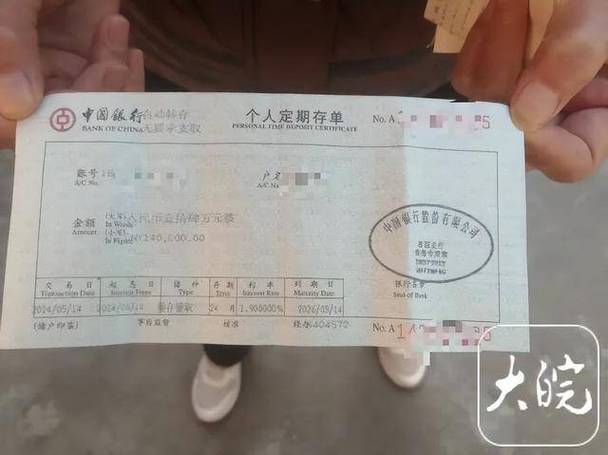 中国银行 自动转存
BANK OF CHINA 无损承支取
个人定期存单
PERSONAL TIME DEPOSIT CERTIFICATE
No. A 5
账号
A/C No.
户名
A/C Name
金额
Amount
(大写) 人民币壹拾肆万元整
In Words
(小写) CNY140,000.00
In Figures
中国银行股份有限公司
银行签章
Seal of Bank
交易日 起息日 储种 存期 利率 到期日
Transaction Date Interest From Type Term Interest Rate Maturity Date
2024/05/14 2024/05/14 整存整取 24 月 1.900000% 2026/05/14
(储户印鉴) 事后监督 核准 经办404572
No. A 1
大皖